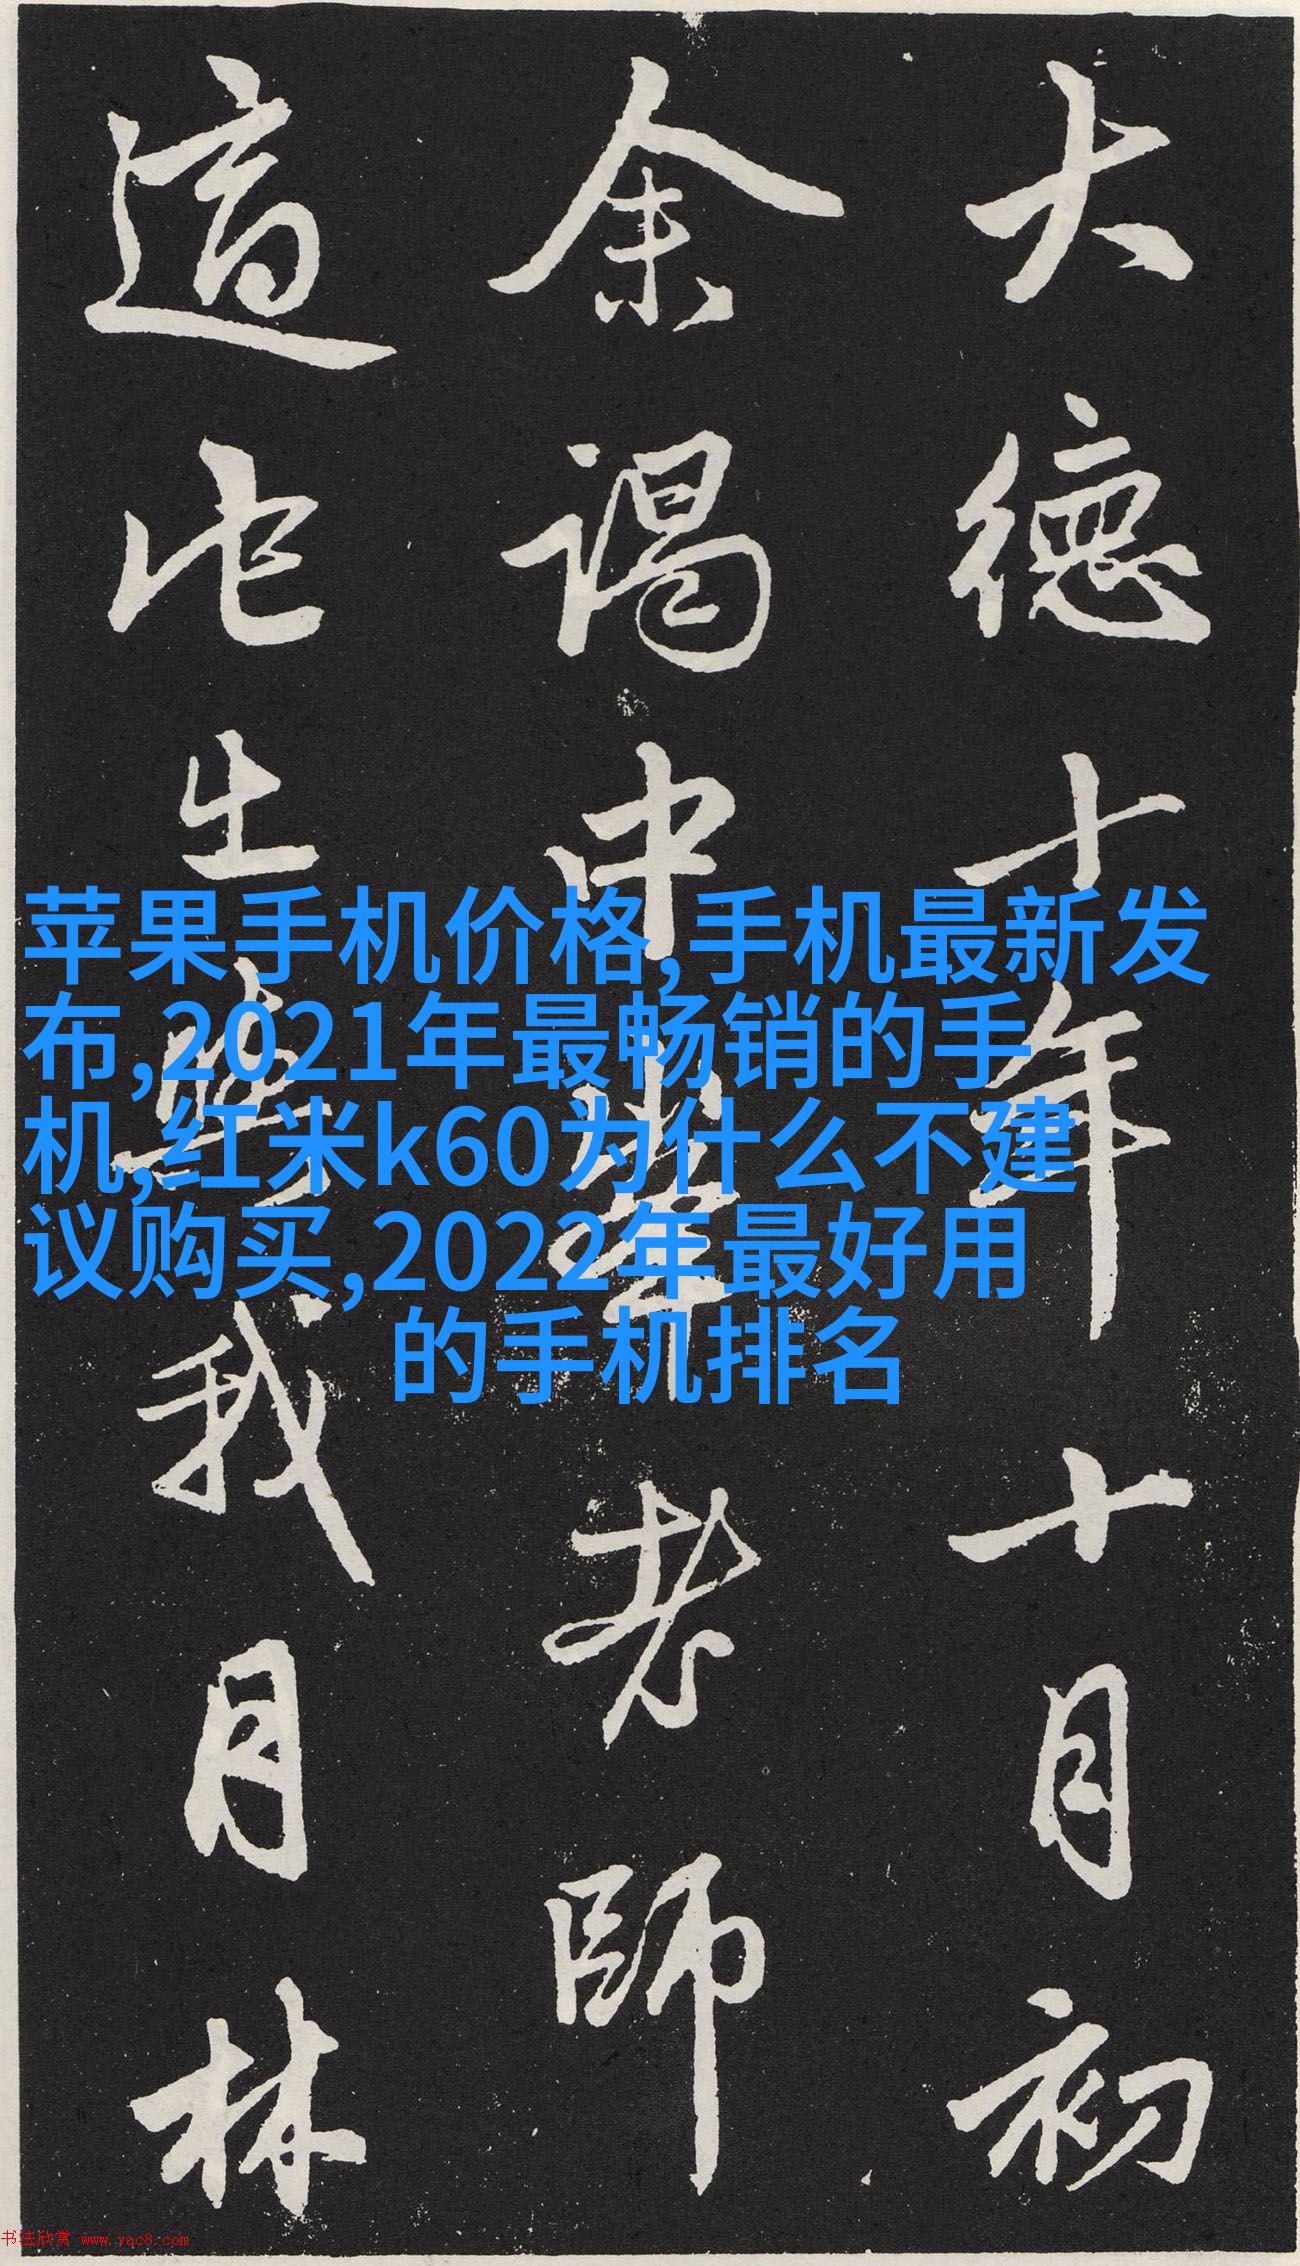 大德十年十月初
余谒中峯老師
適此出與我月林
苹果手机价格,手机最新发
布,2021年最畅销的手
机,红米k60为什么不建
议购买,2022年最好用
的手机排名
书法欣赏 www.yac8.com